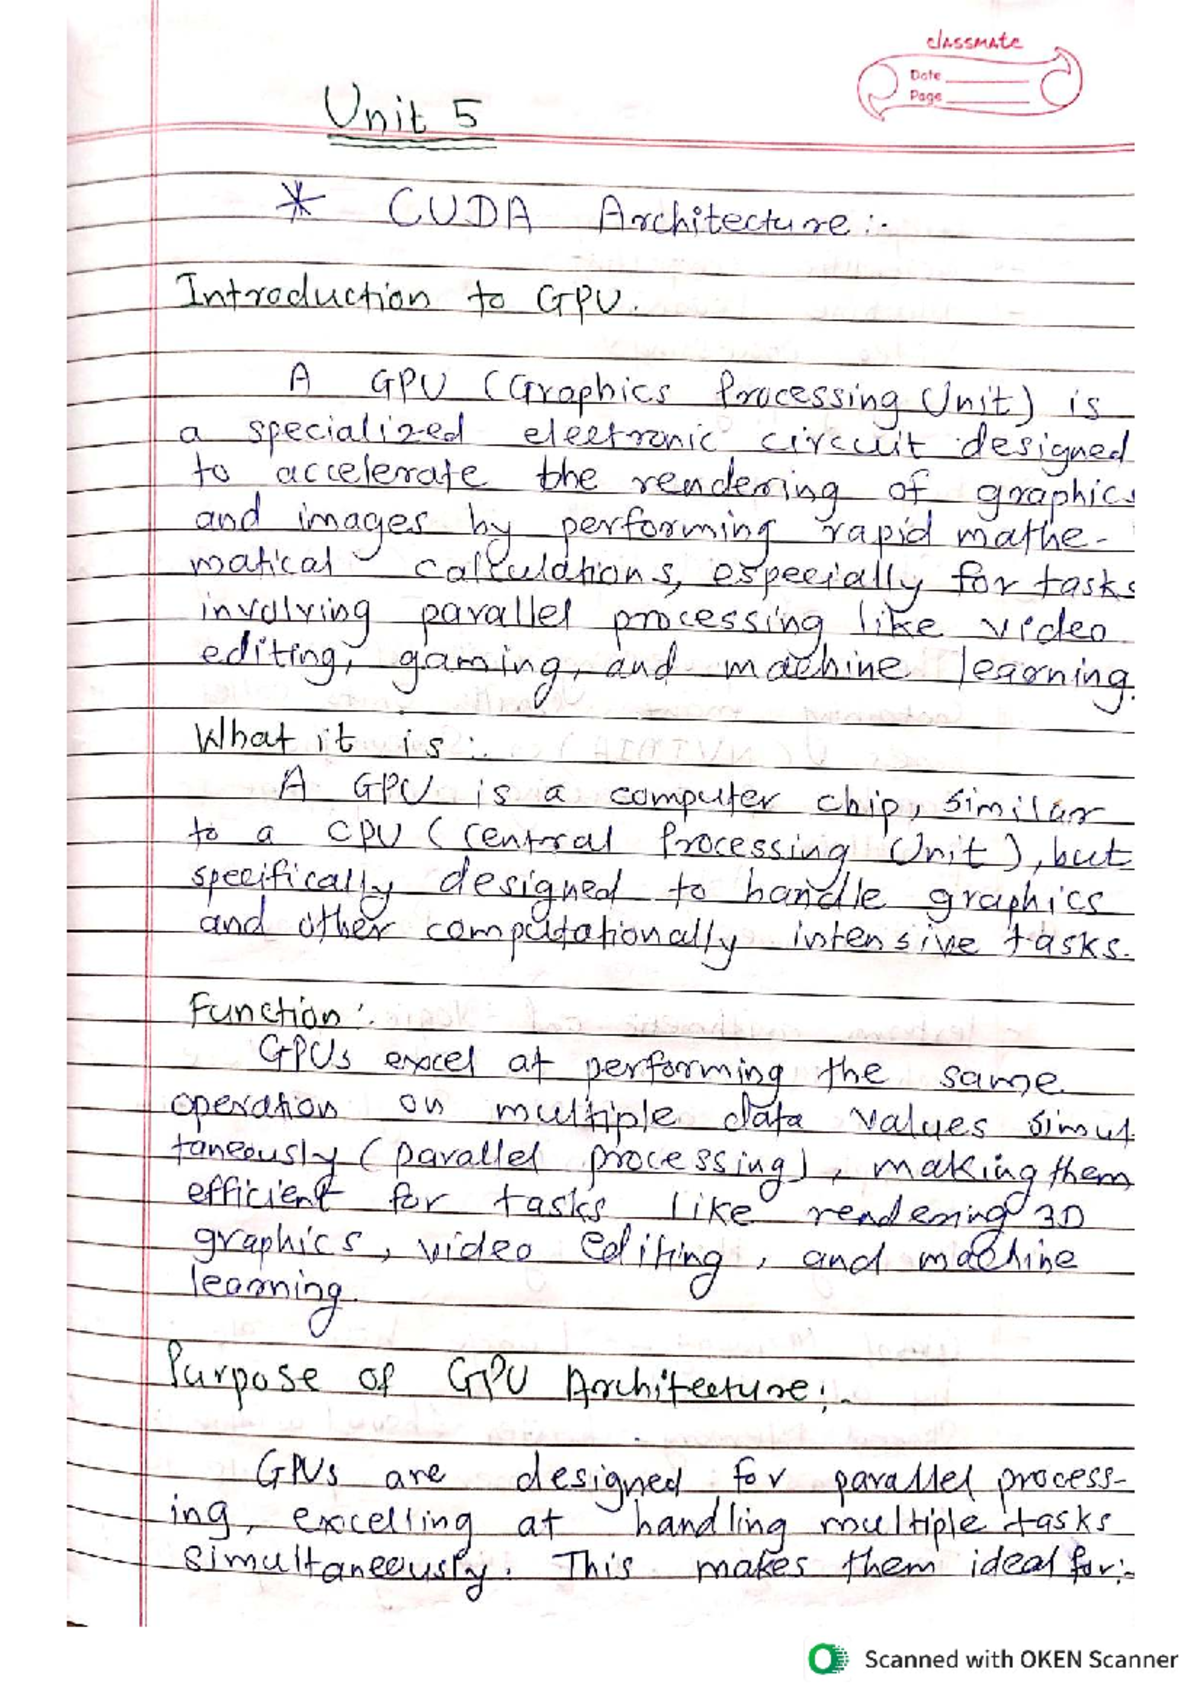 classmate
Date
Page
Unit 5
* CUDA Architecture:-
Introduction to GPU.
A GPU (Graphics Processing Unit) is
a specialized electronic circuit designed
to accelerate the rendering of graphics
and images by performing rapid mathe-
matical calculations, especially for tasks
involving parallel processing like video
editing, gaming, and machine learning.
What it is:-
A GPU is a computer chip, similar
to a CPU (Central Processing Unit), but
specifically designed to handle graphics
and other computationally intensive tasks.
Function:-
GPUs excel at performing the same
operation on multiple data values simul
taneously (parallel processing), making them
efficient for tasks like rendering 3D
graphics, video editing, and machine
learning.
Purpose of GPU Architecture:-
GPUs are designed for parallel process-
ing, excelling at handling multiple tasks
simultaneously. This makes them ideal for:-
Scanned with OKEN Scanner